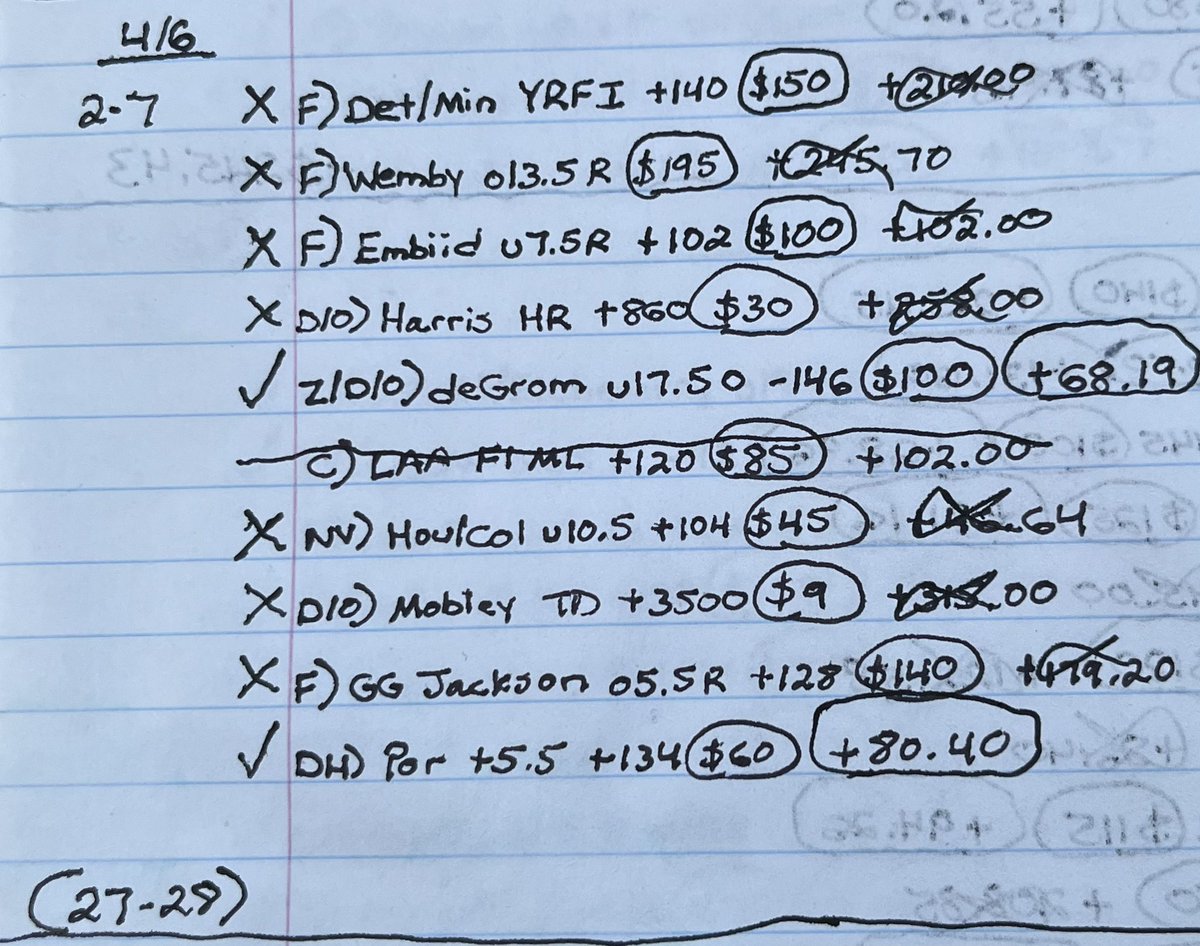 4/6
2-7 X F) Det/Min YRFI +140 $150 +210.00
X F) Wemby o13.5 R $195 +245.70
X F) Embiid u7.5R +102 $100 +102.00
X D/O) Harris HR +860 $30 +258.00
✓ Z/D/O) deGrom u17.5O -146 $100 +68.19
C) LAA F1 ML +120 $85 +102.00
X NV) Hou/Col u10.5 +104 $45 +46.64
X D/O) Mobley TD +3500 $9 +315.00
X F) GG Jackson o5.5R +128 $140 +179.20
✓ DH) Por +5.5 +134 $60 +80.40
(27-28)